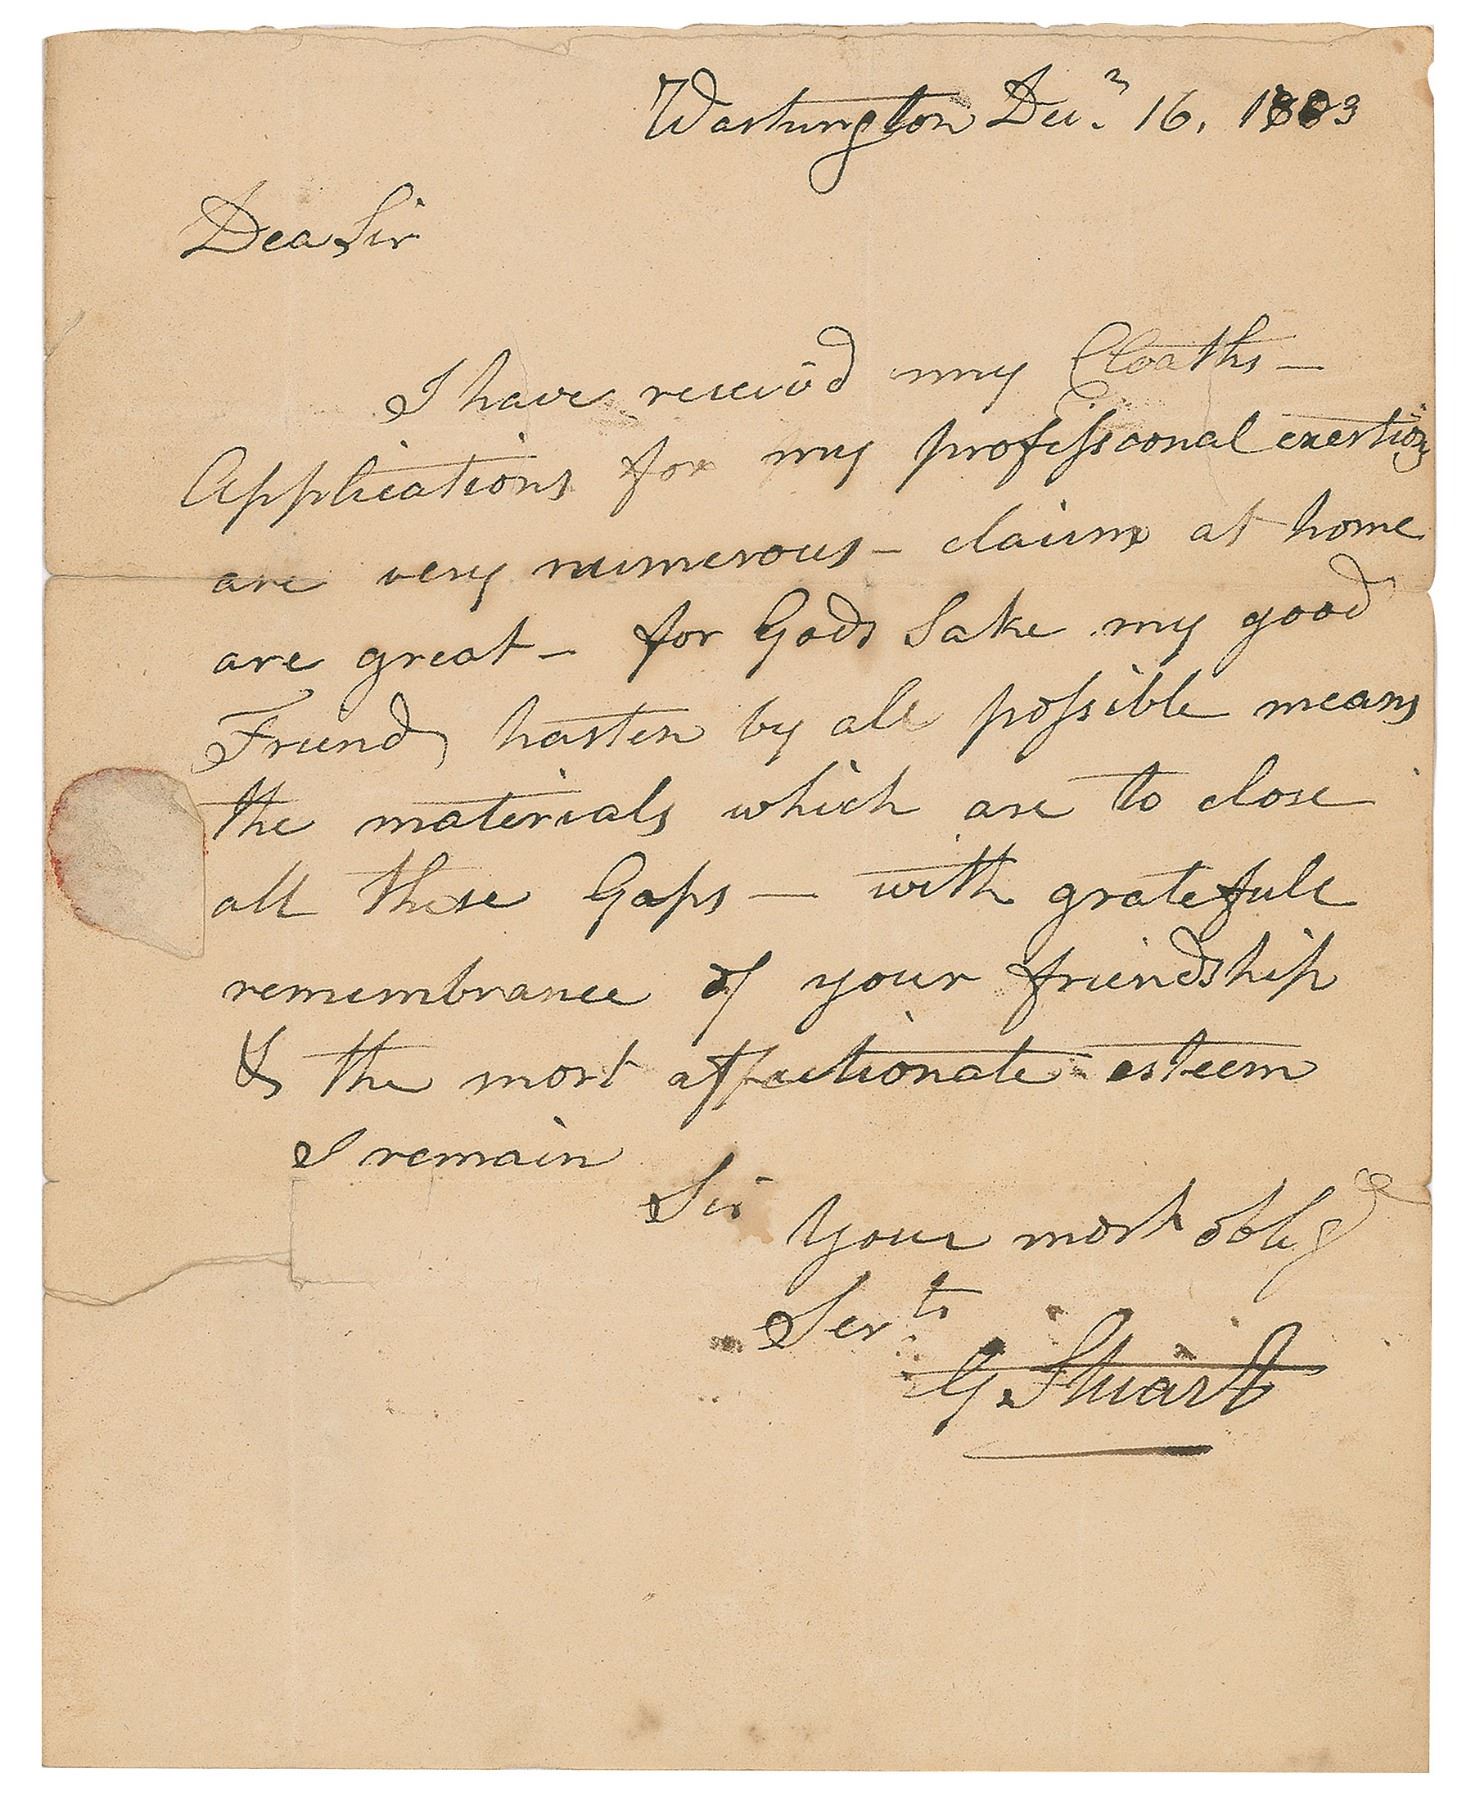 Washington Decr. 16. 1803
Dea Sir
I have receiv'd my Cloaths —
Applications for my professional exertions
are very numerous — claims at home
are great — for Gods Sake my good
Friend, hasten by all possible means
the materials which are to close
all these Gaps — with gratefull
remembrance of your friendship
& the most affectionate esteem
I remain
Sir
Your most oblig'd
Servts
G. Stuart